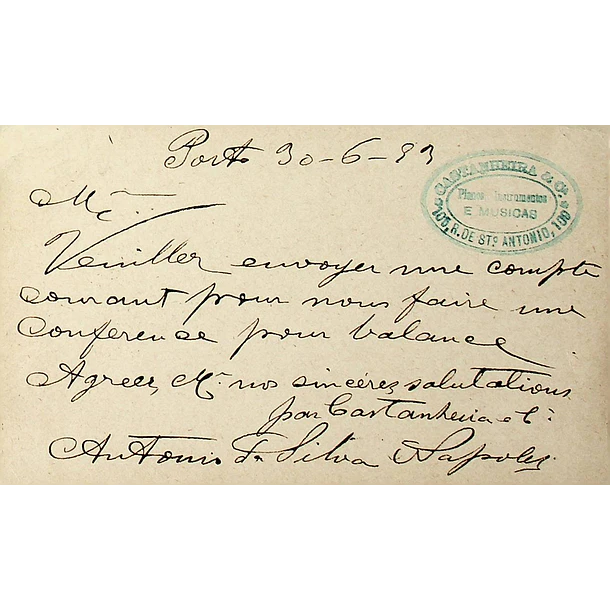 Porto 30-6-93
CASTANHEIRA & Cº
Pianos Instrumentos
E MUSICAS
105, R. DE STº ANTONIO, 109
Mr.
Veuiller envoyer une compte
courant pour nous faire une
conference pour balance
Agreez, Mr. nos sincéres salutations
par Castanheira e Cª
Antonio da Silva Napoles